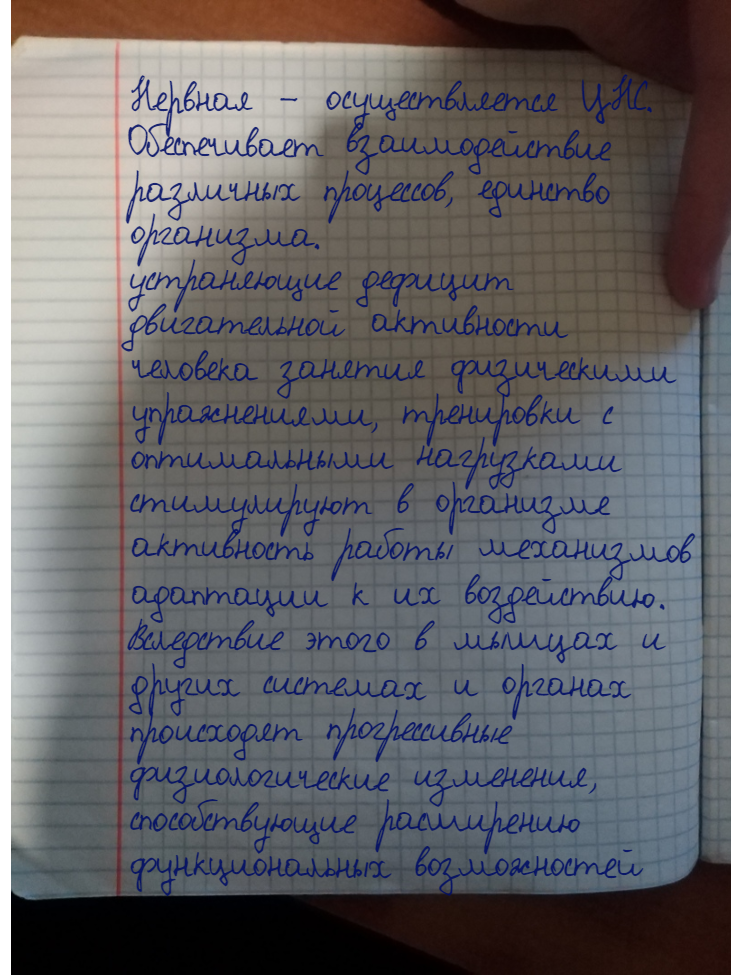 Нервная – осуществляется ЦНС.
Обеспечивает взаимодействие
различных процессов, единство
организма.
устраняющие дефицит
двигательной активности
человека занятия физическими
упражнениями, тренировки с
оптимальными нагрузками
стимулируют в организме
активность работы механизмов
адаптации к их воздействию.
Вследствие этого в мышцах и
других системах и органах
происходят прогрессивные
физиологические изменения,
способствующие расширению
функциональных возможностей